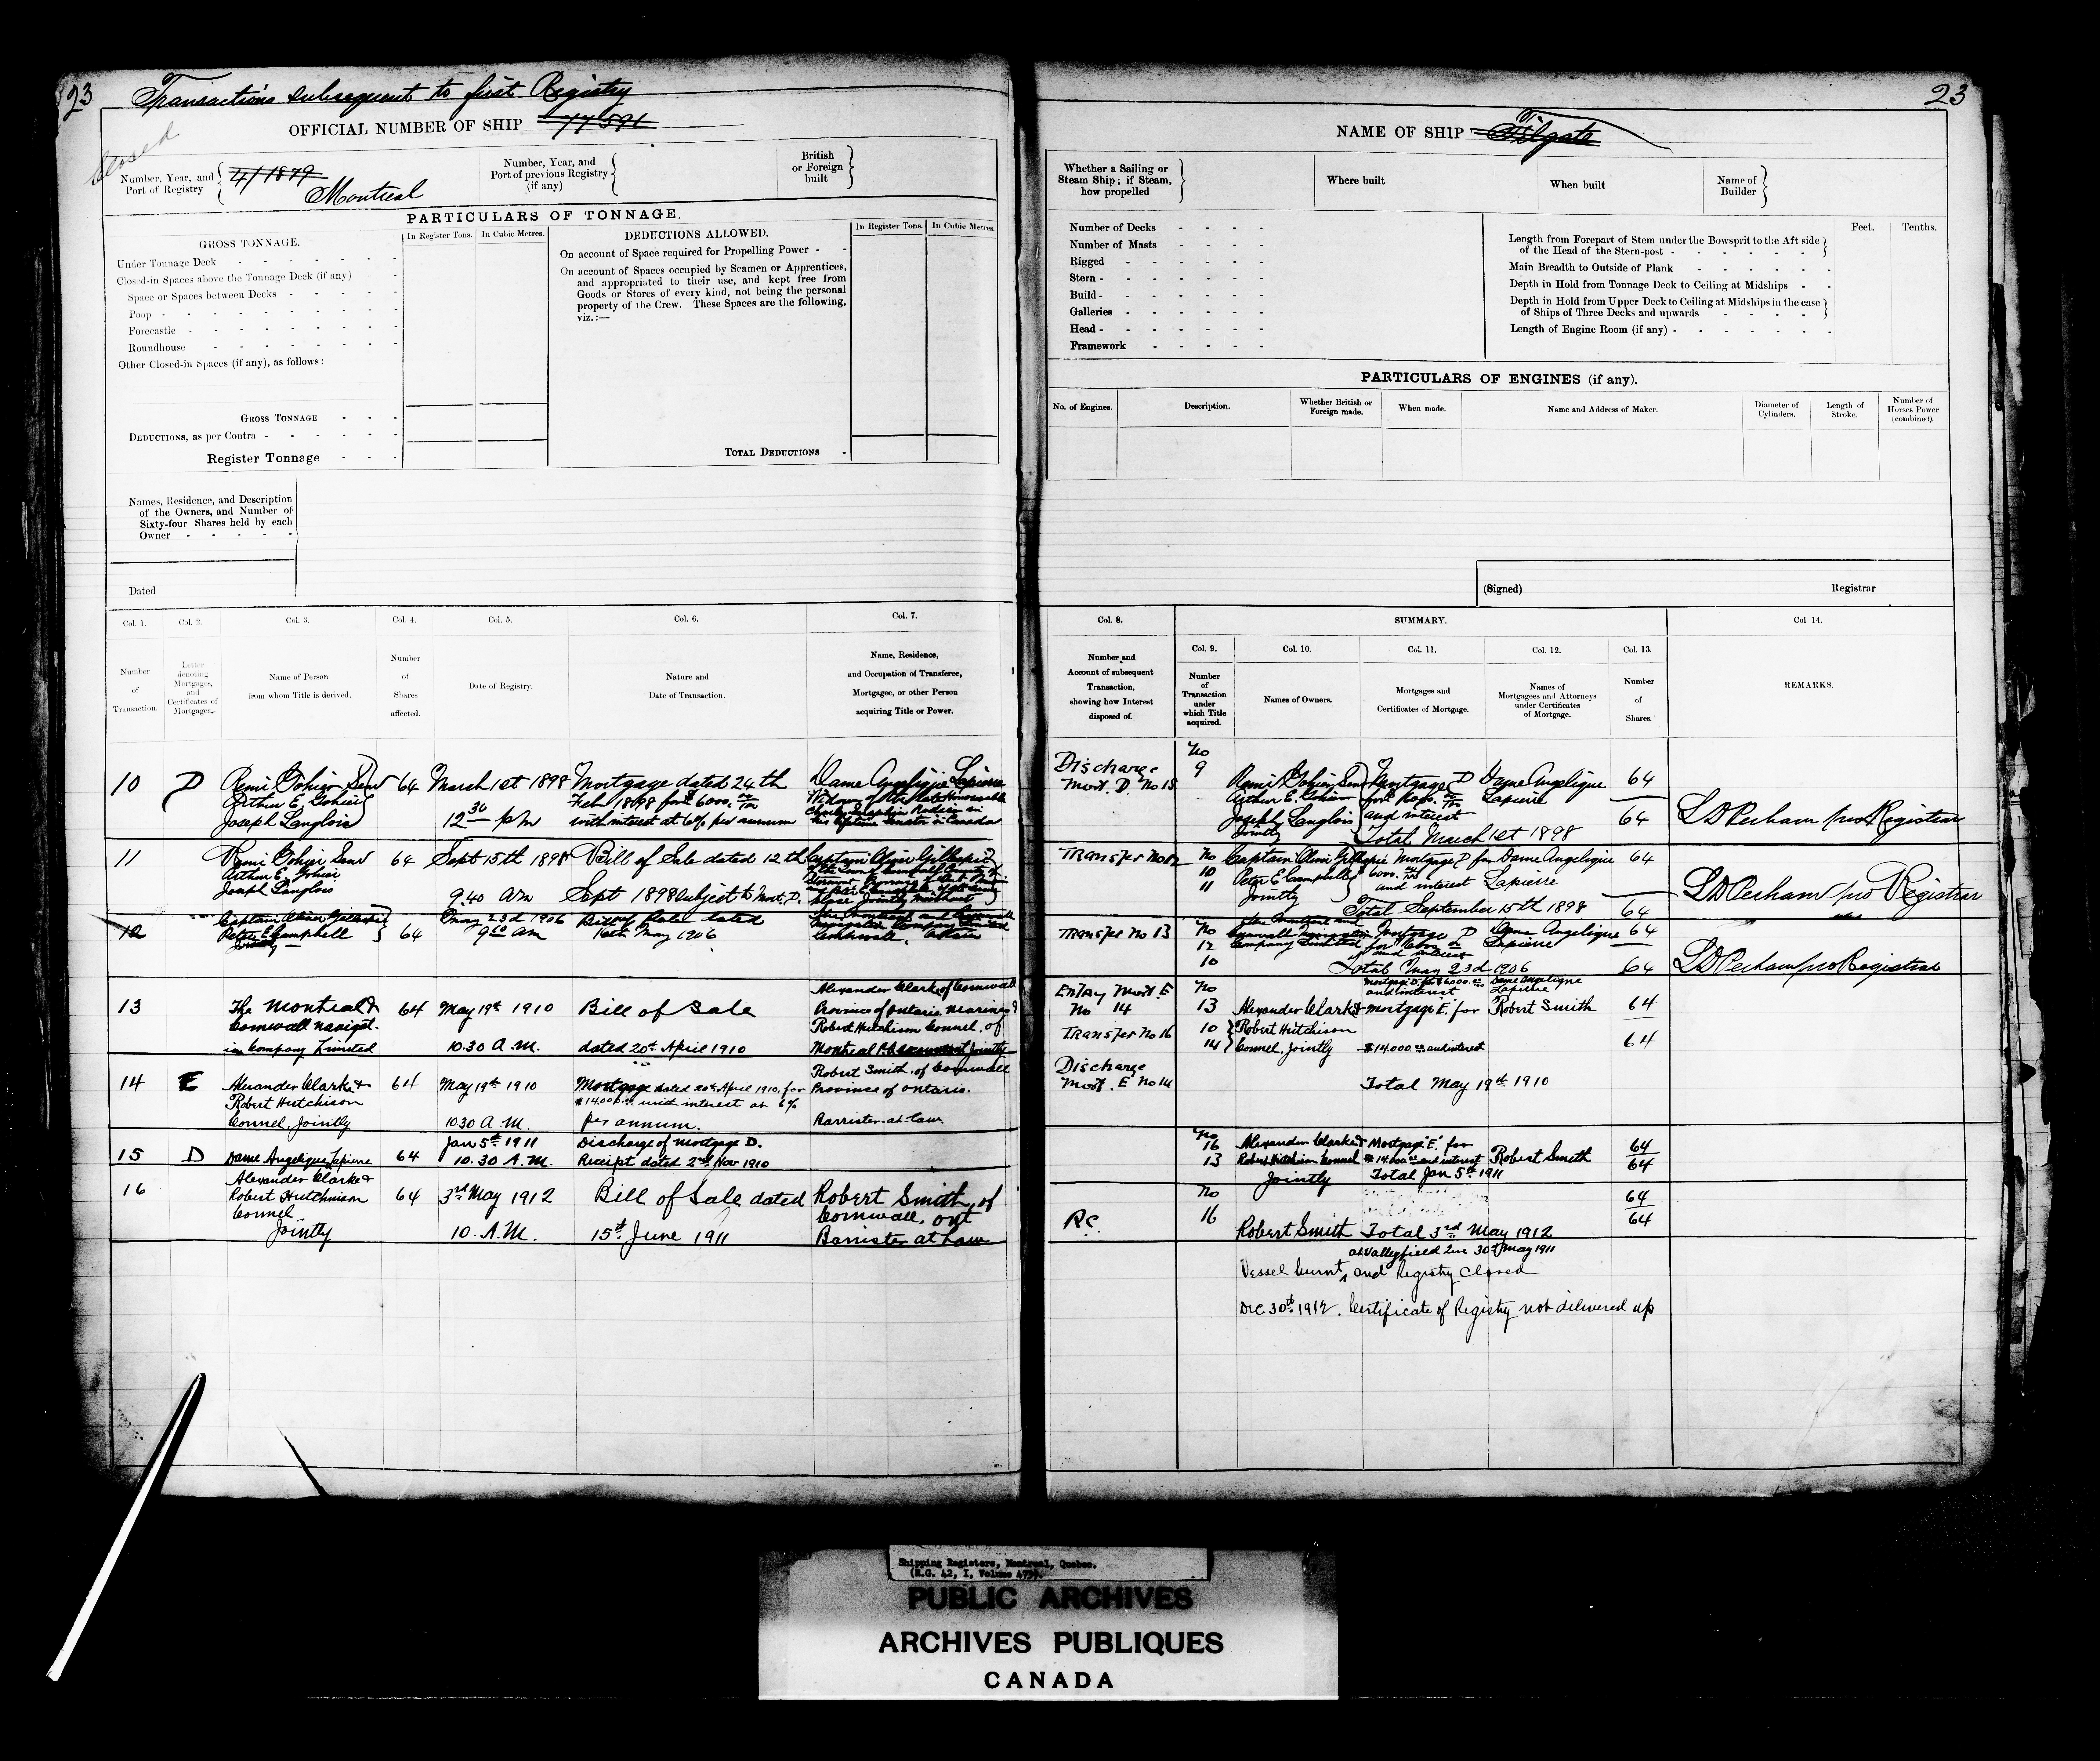 23
Transactions subsequent to first Registry
23
Closed
OFFICIAL NUMBER OF SHIP 77591
NAME OF SHIP Filgate
Number, Year, and Port of Registry { 4/1879 Montreal
Number, Year, and Port of previous Registry (if any) {
British or Foreign built }
Whether a Sailing or Steam Ship; if Steam, how propelled }
Where built
When built
Name of Builder }
PARTICULARS OF TONNAGE.
GROSS TONNAGE.
In Register Tons.
In Cubic Metres.
DEDUCTIONS ALLOWED.
In Register Tons.
In Cubic Metres.
Under Tonnage Deck
Closed-in Spaces above the Tonnage Deck (if any)
Space or Spaces between Decks
Poop
Forecastle
Roundhouse
Other Closed-in Spaces (if any), as follows:
GROSS TONNAGE
DEDUCTIONS, as per Contra
Register Tonnage
On account of Space required for Propelling Power
On account of Spaces occupied by Seamen or Apprentices,
and appropriated to their use, and kept free from
Goods or Stores of every kind, not being the personal
property of the Crew. These Spaces are the following,
viz.:—
TOTAL DEDUCTIONS
Number of Decks
Number of Masts
Rigged
Stern
Build
Galleries
Head
Framework
Feet.
Tenths.
Length from Forepart of Stem under the Bowsprit to the Aft side
of the Head of the Stern-post
Main Breadth to Outside of Plank
Depth in Hold from Tonnage Deck to Ceiling at Midships
Depth in Hold from Upper Deck to Ceiling at Midships in the case
of Ships of Three Decks and upwards
Length of Engine Room (if any)
PARTICULARS OF ENGINES (if any).
No. of Engines.
Description.
Whether British or Foreign made.
When made.
Name and Address of Maker.
Diameter of Cylinders.
Length of Stroke.
Number of Horses Power (combined).
Names, Residence, and Description
of the Owners, and Number of
Sixty-four Shares held by each
Owner
Dated
(Signed)
Registrar
Col. 1.
Col. 2.
Col. 3.
Col. 4.
Col. 5.
Col. 6.
Col. 7.
Col. 8.
SUMMARY.
Col. 9.
Col. 10.
Col. 11.
Col. 12.
Col. 13.
Col 14.
Number of Transaction.
Letter denoting Mortgages, and Certificates of Mortgages.
Name of Person from whom Title is derived.
Number of Shares affected.
Date of Registry.
Nature and Date of Transaction.
Name, Residence, and Occupation of Transferee, Mortgagee, or other Person acquiring Title or Power.
Number and Account of subsequent Transaction, showing how Interest disposed of.
Number of Transaction under which Title acquired.
Names of Owners.
Mortgages and Certificates of Mortgage.
Names of Mortgagees and Attorneys under Certificates of Mortgage.
Number of Shares.
REMARKS.
10 D Remi Gohier Senr 64 March 1st 1898 Mortgage dated 24th Dame Angelique Lapierre
Arthur E. Gohier Feb 1898 for $6000. Widow of the late Honourable
Joseph Langlois 12 30 p m with interest at 6% per annum his lifetime Senator in Canada
Discharge Mort. D. No 15
No 9 Remi Gohier Senr Mortgage D Dame Angelique 64
Arthur E. Gohier for $6000. Lapierre
Joseph Langlois and interest 64
Jointly Total March 1st 1898
L D Perham pro Registrar
11 Remi Gohier Senr 64 Sept 15th 1898 Bill of Sale dated 12th
Arthur E. Gohier
Joseph Langlois 9.40 Am Sept 1898 subject to Mort. D.
Transfer No 12
No 10 11 Captain Mortgage D for Dame Angelique 64
Peter E Campbell 6000. and interest Lapierre
Jointly Total September 15th 1898 64
L D Perham pro Registrar
12 Captain 64 May 23d 1906 Bill of Sale dated The Montreal and Cornwall
Peter E Campbell 9 Am 16th May 1906 Navigation Company Limited
Jointly Cornwall,
Transfer No 13
No 12 10 The Montreal and
Cornwall Navigation Mortgage D Dame Angelique 64
Company Limited for 6000 Lapierre
and interest
Total May 23d 1906 64
L D Perham pro Registrar
13 The Montreal & 64 May 19th 1910 Bill of Sale Alexander Clark, of Cornwall
Cornwall navigat- Province of Ontario Mariner &
ion Company Limited 10.30 A.M. dated 20th April 1910 Robert Hutchison Connel, of
Montreal P.Q. accountant Jointly
Entry Mort E No 14
Transfer No 16
Mortgage D. for $6000. Dame Angelique
and interest Lapierre
No 13 Alexander Clark & mortgage E. for Robert Smith 64
10 Robert Hutchison
14 Connel, Jointly $14.000. and interest 64
Total May 19th 1910
14 E Alexander Clarke & 64 May 19th 1910 Mortgage dated 20th April 1910, for Robert Smith, of Cornwall
Robert Hutchison $14.000. and interest at 6% Province of Ontario.
Connel, Jointly 10 30 A.M. per annum. Barrister-at-law.
Discharge Mort. E No 14
15 D Dame Angelique Lapierre 64 Jan 5th 1911 Discharge of mortgage D.
10.30 A.M. Receipt dated 2nd Nov 1910
No 16 Alexander Clarke & Mortgage "E." for 64
13 Robert Hutchison Connel $14.000. and interest Robert Smith 64
Jointly Total Jan 5th 1911
16 Alexander Clarke &
Robert Hutchinson 64 3rd May 1912 Bill of Sale dated Robert Smith, of
Connel Cornwall, ont
Jointly 10. A.M. 15th June 1911 Barrister at Law
R.C.
No 16 64
Robert Smith Total 3rd May 1912 64
at Valleyfield Que 30th May 1911
Vessel burnt, and Registry Closed
Dec 30th 1912. Certificate of Registry not delivered up
Shipping Registers, Montreal, Quebec.
(R.G. 42, I, Volume 475).
PUBLIC ARCHIVES
ARCHIVES PUBLIQUES
CANADA